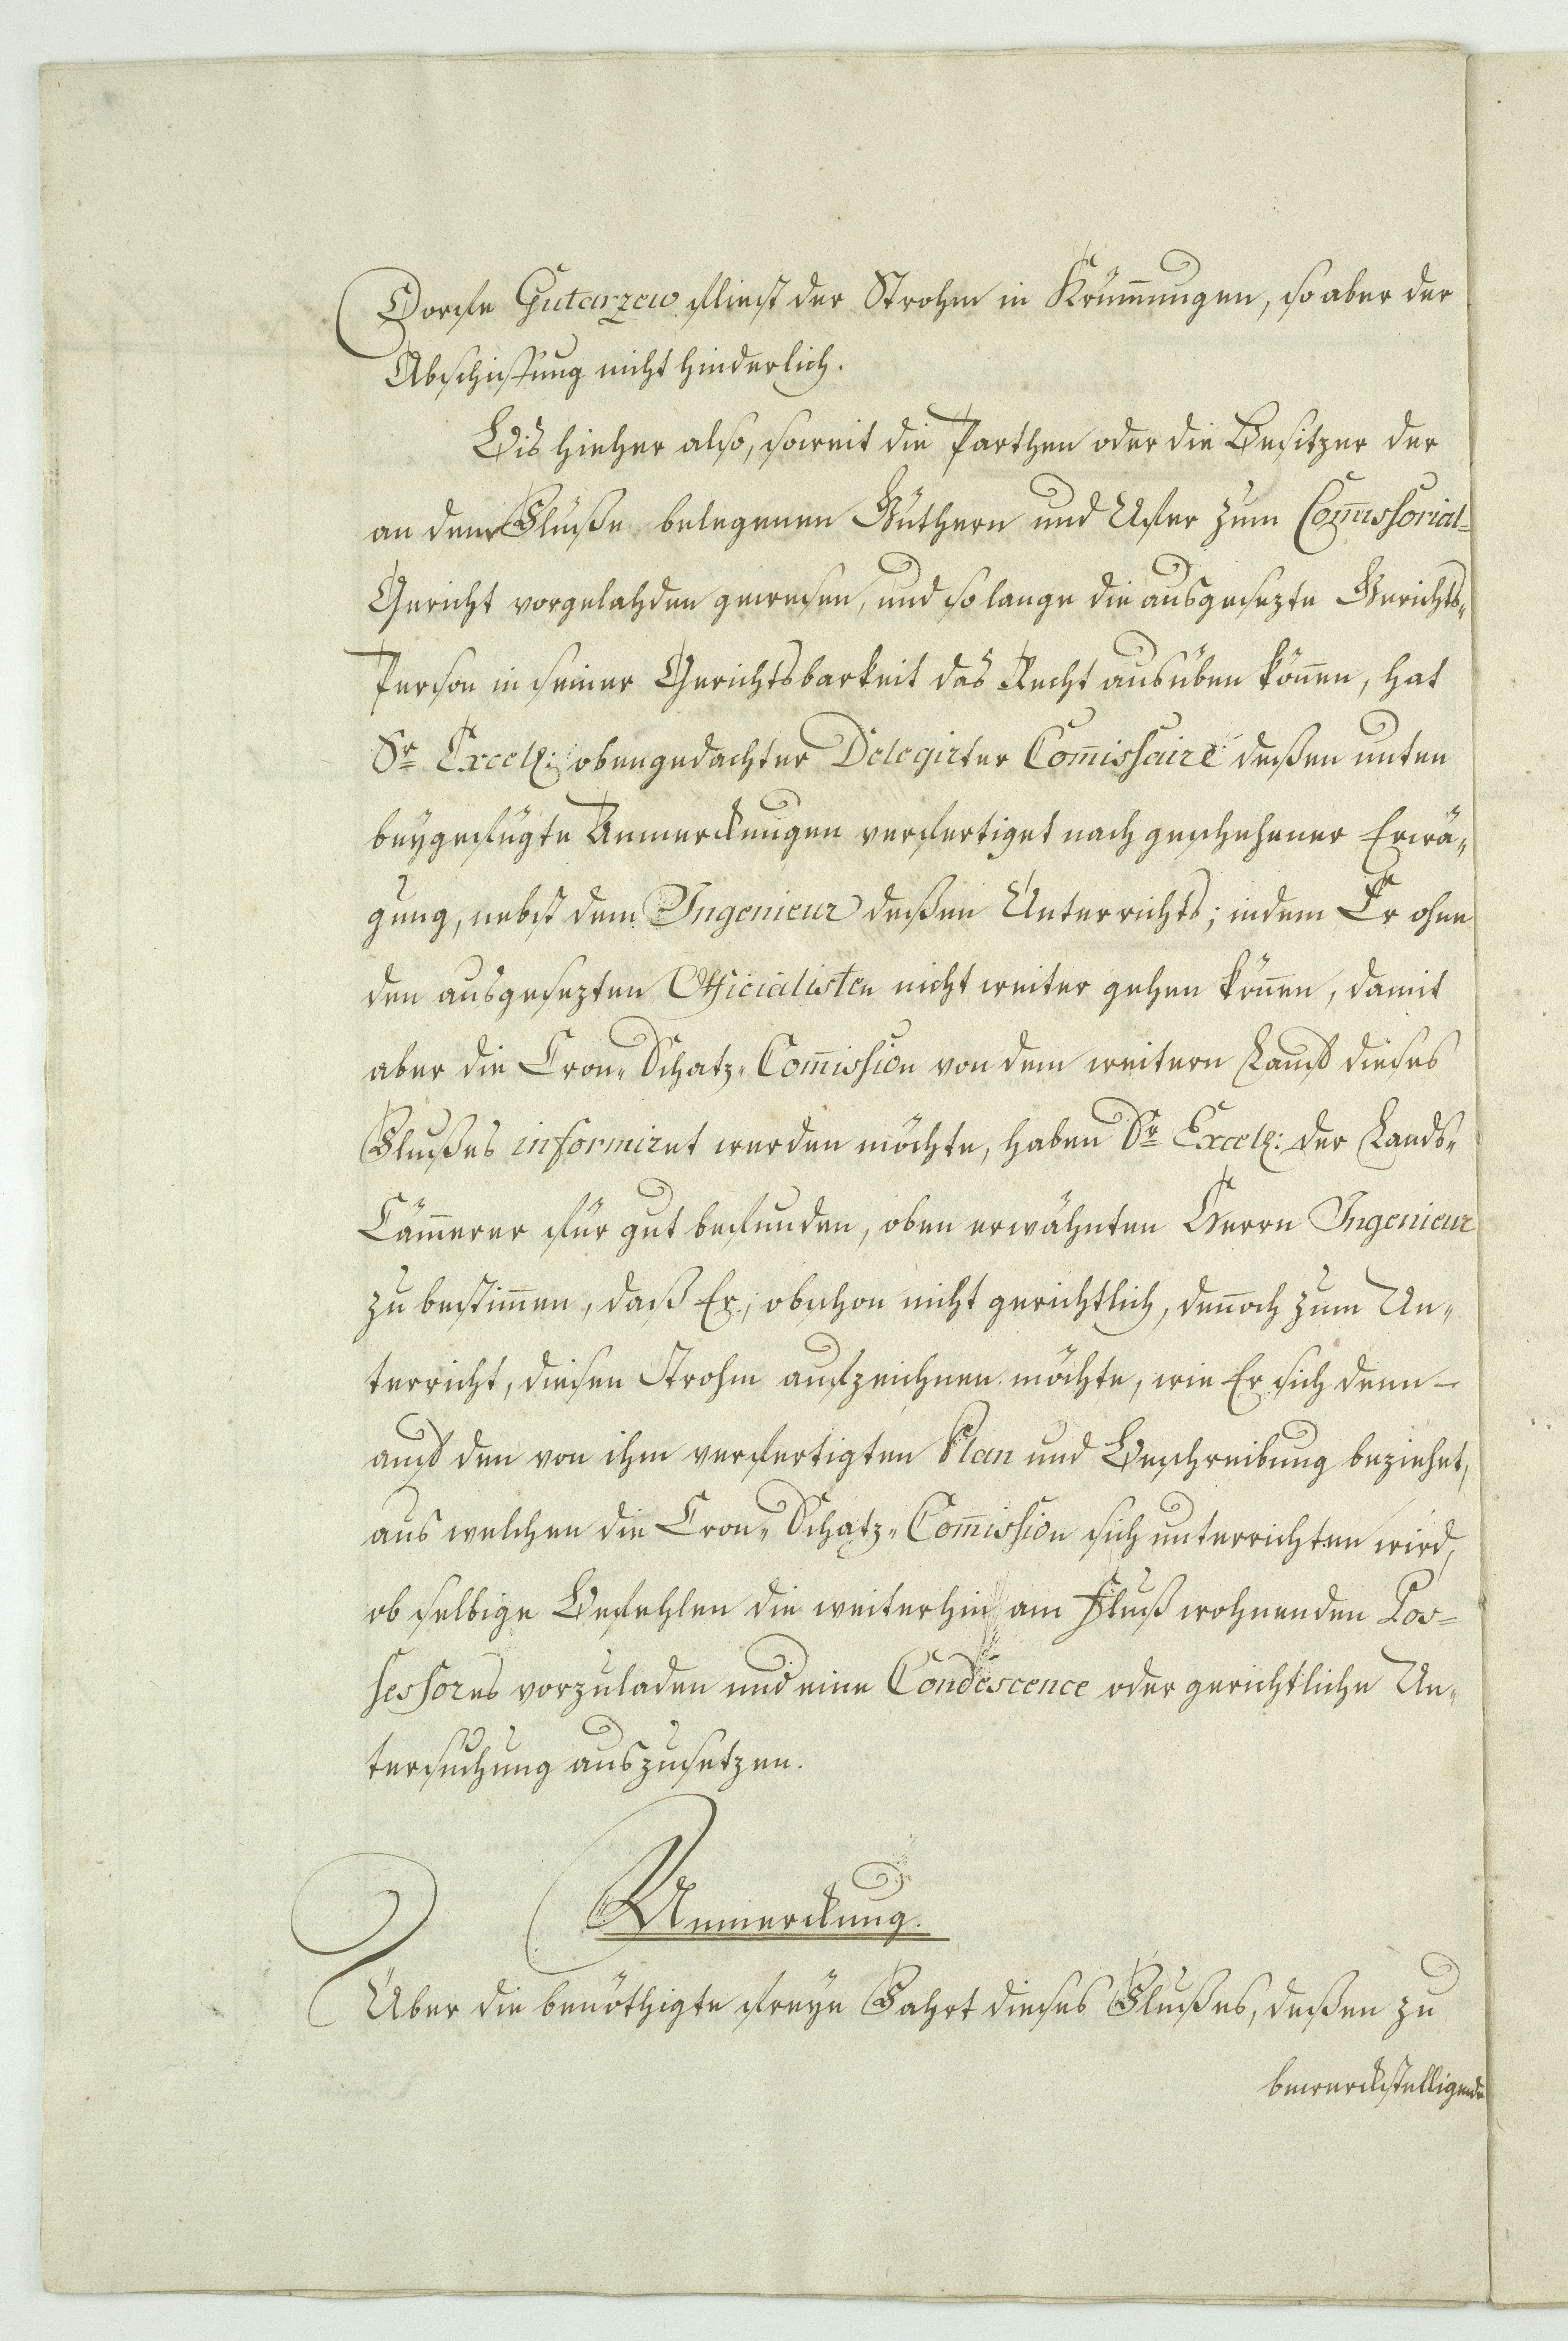 Dorfe Gutarzew fliest der Strohm in Krüm̄ungen, so aber der
Abschiffung nicht hinderlich.
Bis hieher also, soweit die Parthen oder die Besitzer der
an dem Flußе belegenen Güthern und Ufer zum Com̄issorial-
Gericht vorgelahden gewesen, und so lange die ausgesezte Gerichts-
Person in seiner Gerichtsbarkeit das Recht ausüben kön̄en, hat
Sr. Excell: obengedachter Delegirter Com̄issaire deßen unten
beygefügte Anmerckungen verfertiget nach geschehener Erwä-
gung, nebst dem Ingenieur deßen Unterrichts; indem Er ohne
den ausgesezten Officialisten nicht weiter gehen kön̄en, damit
aber die Cron-Schatz-Com̄ission von dem weitern Lauf dieses
Flußes informiret werden möchte, haben Sr. Excell: der Lands-
Cäm̄erer für gut befunden, oben erwähnten Herrn Ingenieur
zu bestim̄en, daß Er, obschon nicht gerichtlich, den̄och zum Un-
terricht, diesen Strohm aufzeichnen möchte, wie Er sich denn
auf den von ihm verfertigten Plan und Beschreibung beziehet,
aus welchen die Cron-Schatz-Com̄ission sich unterrichten wird,
ob selbige Befehlen die weiterhin am Fluß wohnenden Pos-
sessores vorzuladen und eine Condescence oder gerichtliche Un-
tersuchung auszusetzen.
Anmerckung.
Über die benöthigte freye Fahrt dieses Flußes, deßen zu
bewerckstelligende